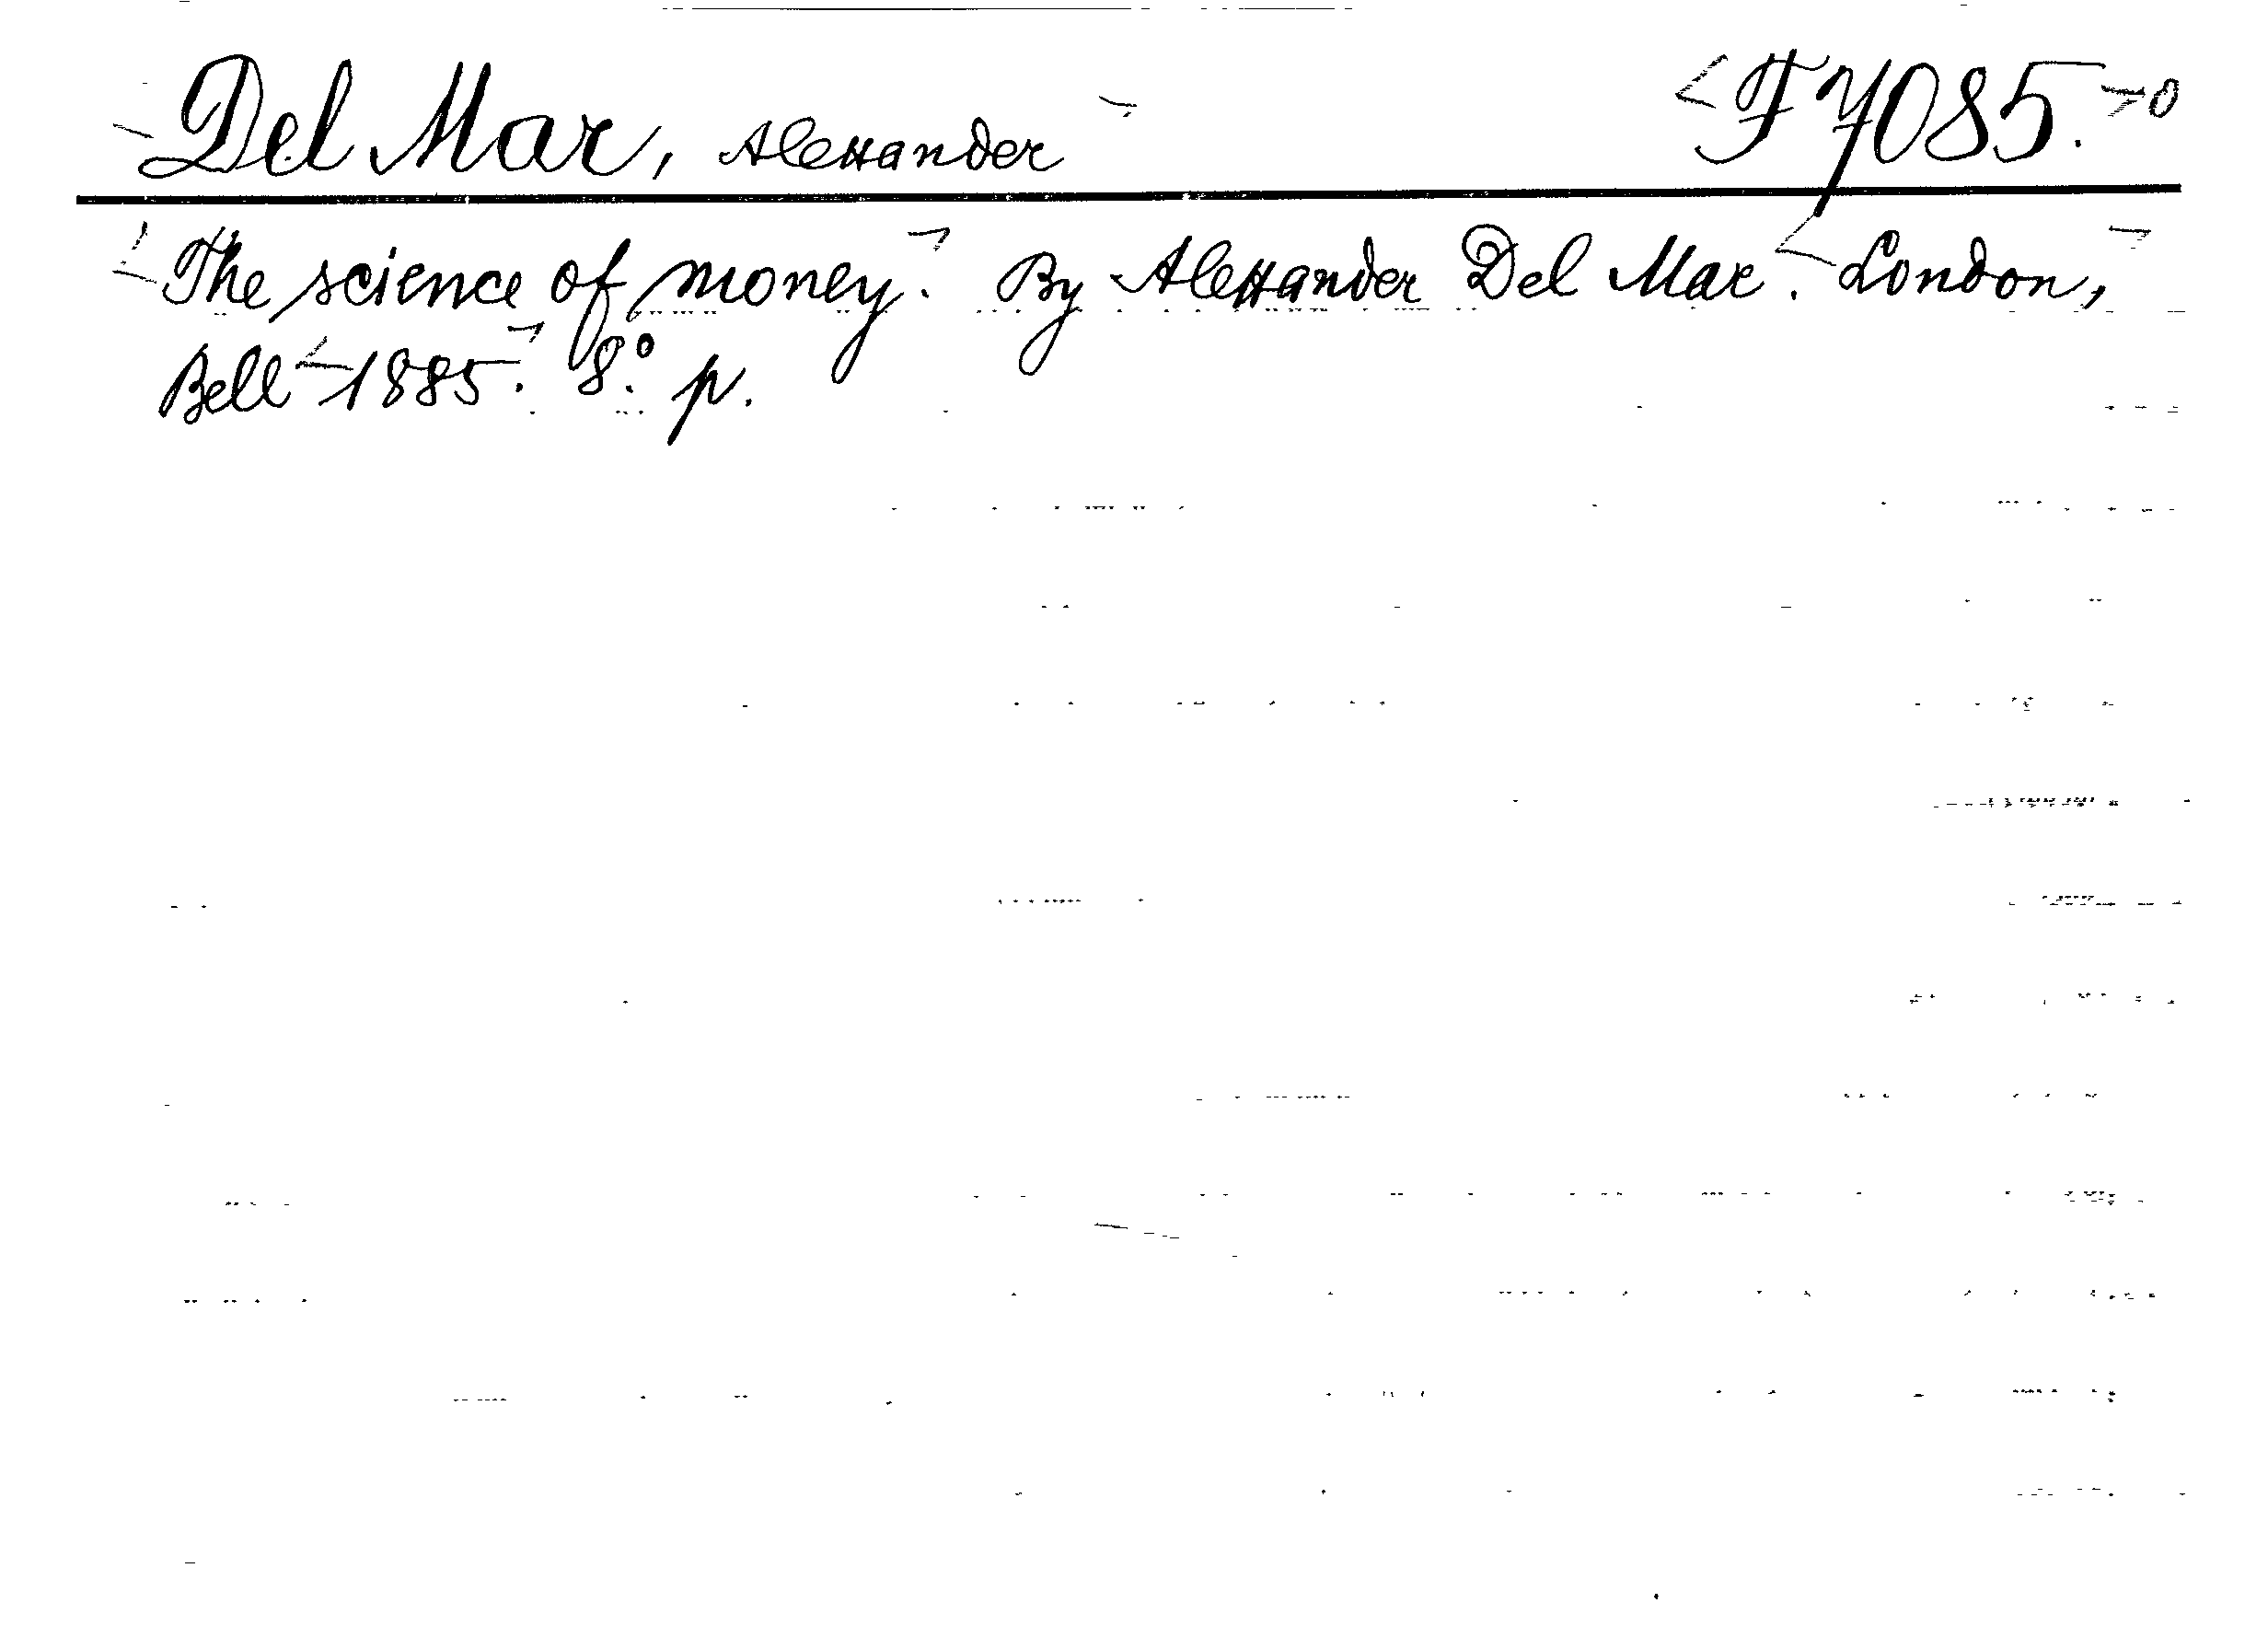 Del Mar, Alexander <F 7085.> 0
<The science of money.> By Alexander Del Mar. <London,>
Bell <1885.> 8.° p.